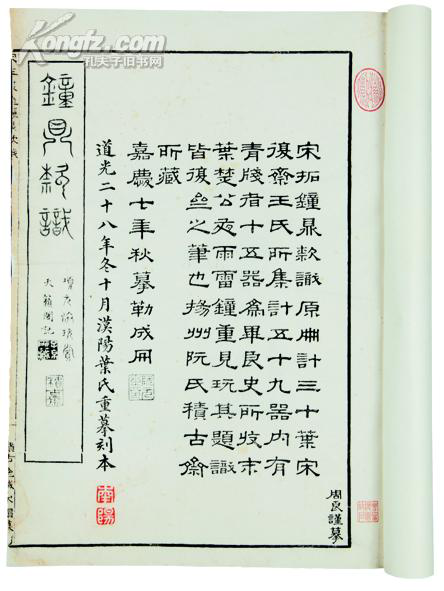 Kongfz.com
孔夫子旧书网
宋拓鐘鼎款識原冊計三十葉宋
復齋王氏所集計五十九器內有
青牋者十五器為畢良史所收末
葉楚公夜雨雷鐘重見玩其題識
皆復亝之筆也揚州阮氏積古齋
所藏
嘉慶七年秋摹勒成冊
道光二十八年冬十月漢陽葉氏重摹刻本
南陽
周良謹摹
鐘鼎款識
天籟閣記